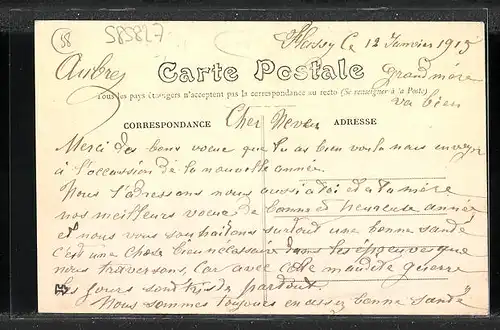 58
585827
Flassy le 12 Janvier 1915
Aubrey
Carte Postale
grand mère
va bien
Tous les pays étrangers n'acceptent pas la correspondance au recto (Se renseigner à la Poste)
CORRESPONDANCE
ADRESSE
Cher Neveu
Merci des bons voeux que tu as bien voulu nous envoyer
à l'occassion de la nouvelle année
Nous t'adressons nous aussi a toi et a ta mère
nos meilleurs voeux de bonne et heureuse année
et nous vous souhaitons surtout une bonne santé
c'est une chose bien nécessaire dans les époques que
nous traversons, Car avec cette maudite guerre
les jours sont tristes partout
Nous sommes toujours en assez bonne santé